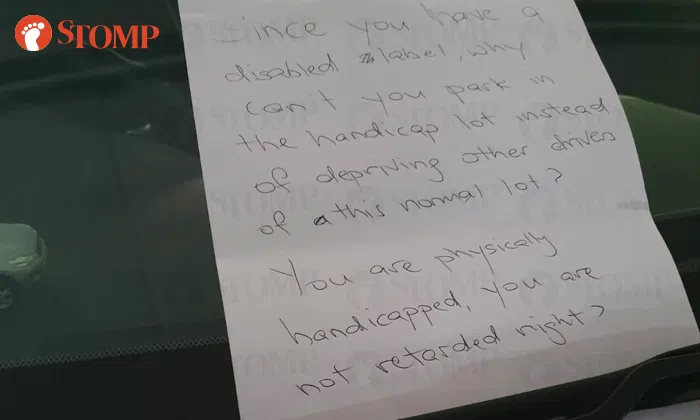 STOMP
Since you have a
disabled label, why
can't you park in
the handicap lot instead
of depriving other drives
of this normal lot?
You are physically
handicapped, you are
not retarded right?